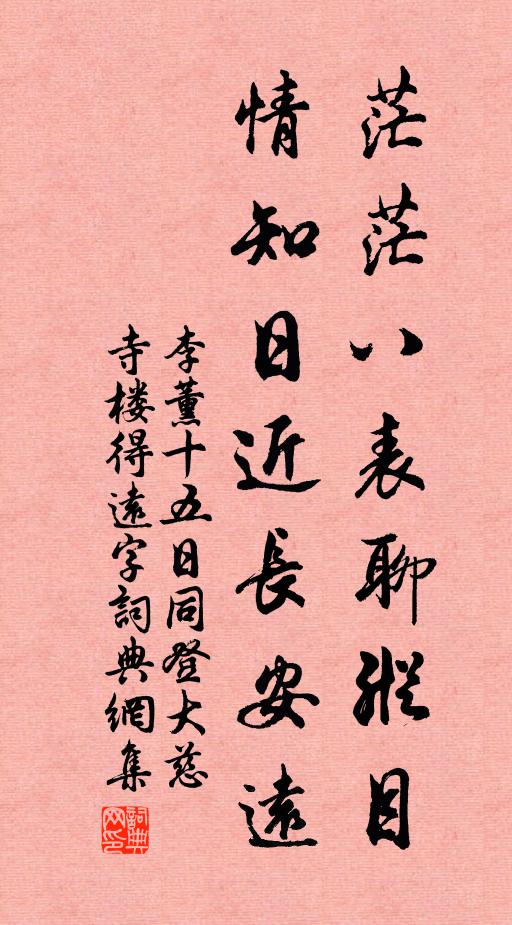 茫茫八表聊縱目
情知日近長安遠
李薰十五日同登大慈
寺楼得遠字詞典網集
詞典网印